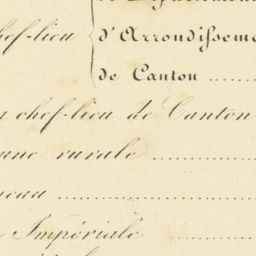 chef-lieu
d'Arrondisseme
de Canton ......
chef-lieu de Canton
rurale ............
............
Impériale ............